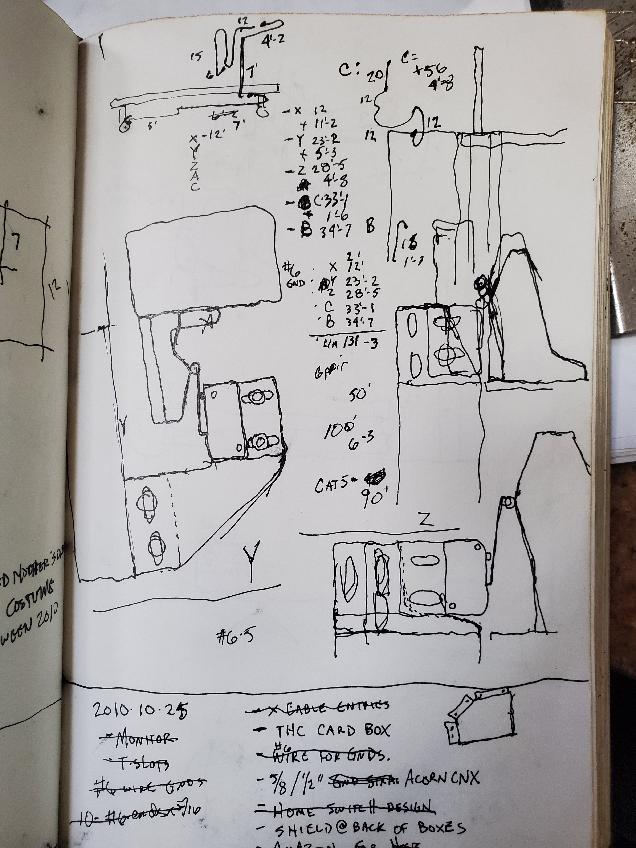 12
4'-2
15
6
7'
5'
7'
X -12'
Y
Z
A
C
- X 12
+ 11'-2
- Y 23'-2
+ 5'-3
- Z 28'-5
4'-8
- C 33'-1
1'-6
- B 34'-7
C:
20
C=
+56
4'-8
12
12
12
B
18
#6
GND
2'
X 12'
Y 23'-2
Z 28'-5
C 33'-1
B 34'-7
131'-3
6 pair
50'
100'
6-3
CAT5-
90'
7
12
A
Y
Y
Z
#6.5
COSTUME
2010
2010.10.25
- MONITOR
- T-SLOTS
#6 WIRE GNDS
10- #6 ends x 5/16
- X CABLE ENTRIES
- THC CARD BOX
#6
- WIRE FOR GNDS.
- 5/8 / 1/2" ACORN CNX
- HOME SWITCH DESIGN
- SHIELD @ BACK OF BOXES